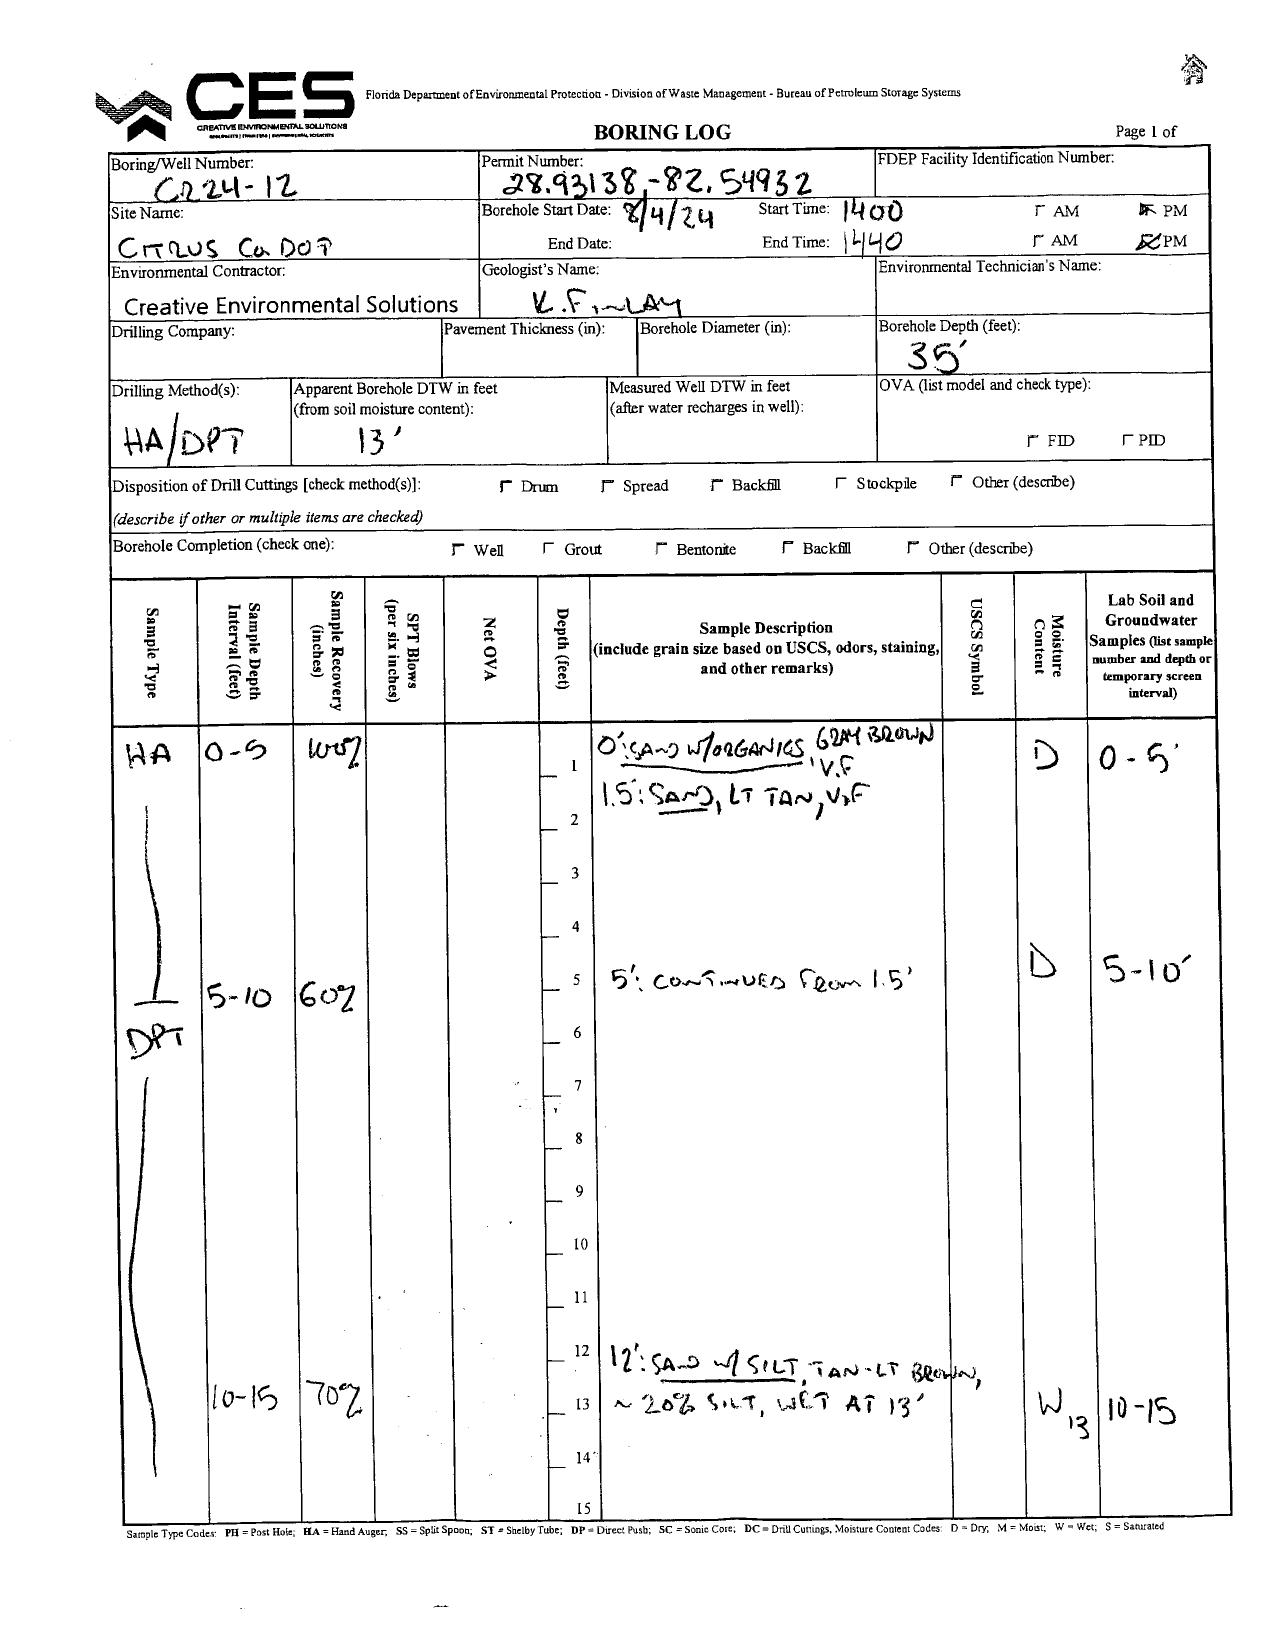 CES
CREATIVE ENVIRONMENTAL SOLUTIONS
Florida Department of Environmental Protection - Division of Waste Management - Bureau of Petroleum Storage Systems
BORING LOG
Page 1 of
Boring/Well Number: CR24-12
Permit Number: 28.93138,-82.54932
FDEP Facility Identification Number:
Site Name: CITRUS Co DOT
Borehole Start Date: 8/4/24 Start Time: 1400 AM PM
End Date: End Time: 1440 AM PM
Environmental Contractor: Creative Environmental Solutions
Geologist's Name: K. FINLAY
Environmental Technician's Name:
Drilling Company:
Pavement Thickness (in):
Borehole Diameter (in):
Borehole Depth (feet): 35'
Drilling Method(s): HA/DPT
Apparent Borehole DTW in feet
(from soil moisture content): 13'
Measured Well DTW in feet
(after water recharges in well):
OVA (list model and check type):
FID PID
Disposition of Drill Cuttings [check method(s)]: Drum Spread Backfill Stockpile Other (describe)
(describe if other or multiple items are checked)
Borehole Completion (check one): Well Grout Bentonite Backfill Other (describe)
Sample Type
Sample Depth
Interval (feet)
Sample Recovery
(inches)
SPT Blows
(per six inches)
Net OVA
Depth (feet)
Sample Description
(include grain size based on USCS, odors, staining,
and other remarks)
USCS Symbol
Moisture
Content
Lab Soil and
Groundwater
Samples (list sample
number and depth or
temporary screen
interval)
HA 0-5 100% 0': SAND W/ORGANICS, GRAY BROWN D 0-5'
1 V.F
1.5': SAND, LT TAN, V.F
2
3
4
5 5': CONTINUED FROM 1.5' D 5-10'
5-10 60%
DPT
6
7
8
9
10
11
12 12': SAND W/ SILT, TAN-LT BROWN,
10-15 70% 13 ~ 20% SILT, WET AT 13' W 13 10-15
14
15
Sample Type Codes: PH = Post Hole; HA = Hand Auger; SS = Split Spoon; ST = Shelby Tube; DP = Direct Push; SC = Sonic Core; DC = Drill Cuttings, Moisture Content Codes: D = Dry; M = Moist; W = Wet; S = Saturated